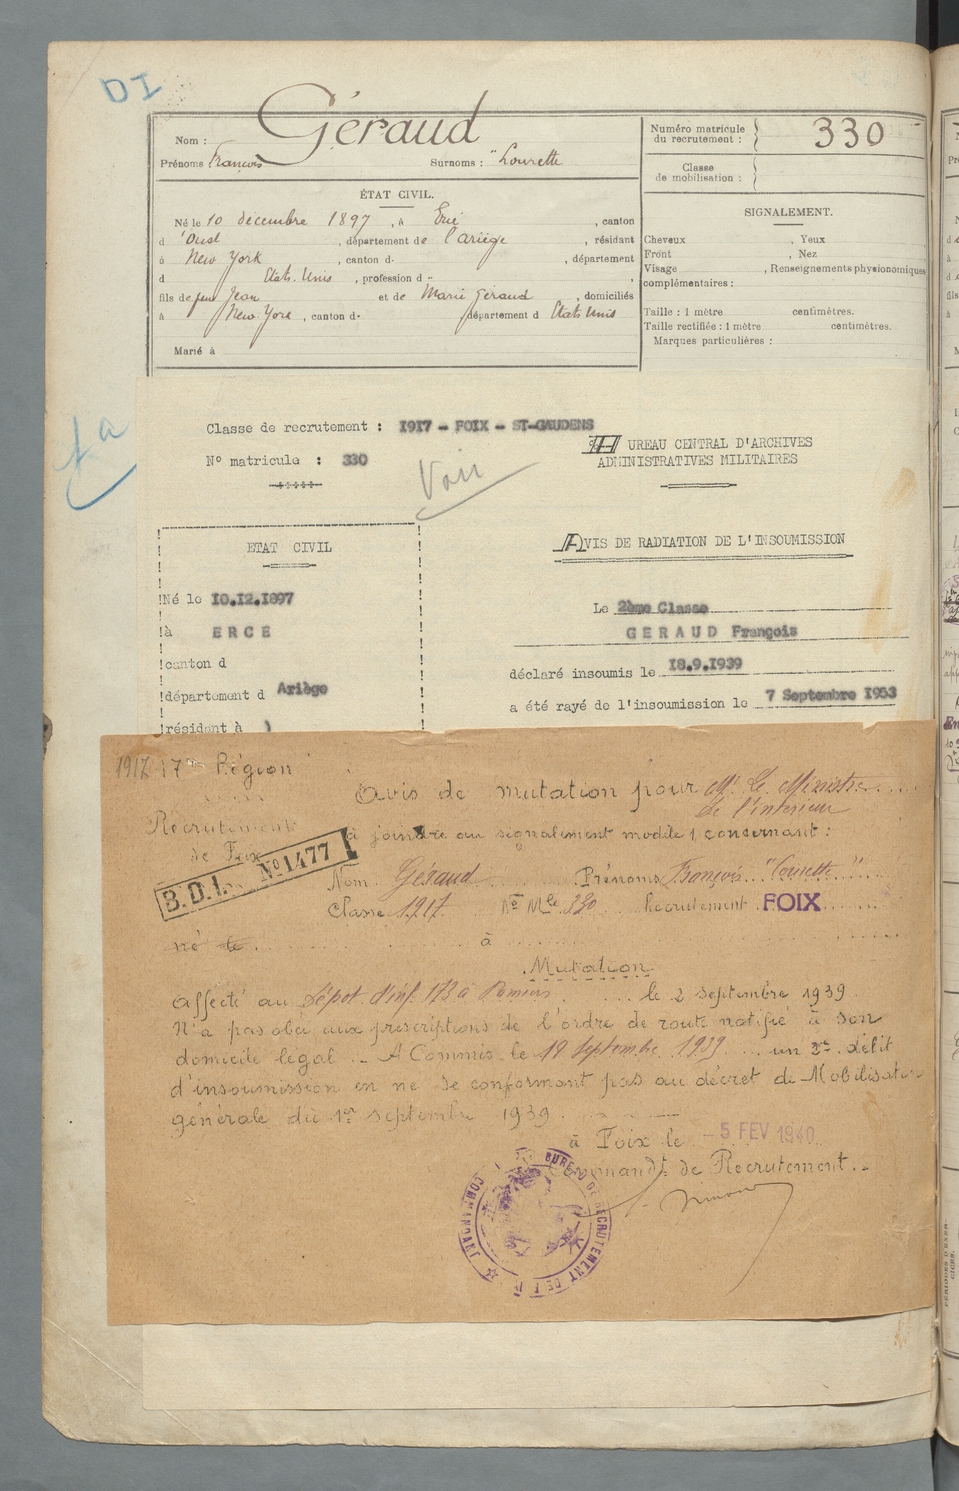 DI
Nom : Géraud
Prénoms François Surnoms : "Lourette
Numéro matricule du recrutement : 330
Classe de mobilisation :
ÉTAT CIVIL.
Né le 10 décembre 1897, à Ercé, canton
d'Oust, département de l'Ariège, résidant
à New York, canton d-, département
d États-Unis, profession d -,
fils de feu Jean et de Marie Géraud, domiciliés
à New-York, canton d-, département d États Unis
Marié à
SIGNALEMENT.
Cheveux , Yeux
Front , Nez
Visage , Renseignements physionomiques
complémentaires :
Taille : 1 mètre centimètres.
Taille rectifiée : 1 mètre centimètres.
Marques particulières :
Classe de recrutement : 1917 - FOIX - ST-GAUDENS
N° matricule : 330
Voir
UREAU CENTRAL D'ARCHIVES
ADMINISTRATIVES MILITAIRES
ETAT CIVIL
Né le 10.12.1897
à ERCE
canton d
département d Ariège
résident à )
AVIS DE RADIATION DE L'INSOUMISSION
Le 2ème Classe
GERAUD François
déclaré insoumis le 18.9.1939
a été rayé de l'insoumission le 7 Septembre 1953
1917 17me Région
Recrutement
de Foix
B.D.I. N° 1477
Avis de mutation pour Mr Le Ministre
de l'intérieur
à joindre au signalement modèle 1, concernant :
Nom Géraud Prénoms François "Lourette"
Classe 1917 N° Mle 330 Recrutement FOIX
né le à
Mutation
Affecté au Dépot d'inf. 173 à Pamiers le 2 septembre 1939
N'a pas obéi aux prescriptions de l'ordre de route notifié à son
domicile légal - A Commis le 18 Septembre 1939 un 2e délit
d'insoumission en ne se conformant pas au décret de Mobilisation
générale du 1er septembre 1939.
à Foix le - 5 FEV 1940
Commandt de Recrutement.
COMMANDANT BUREAU DE RECRUTEMENT DE F